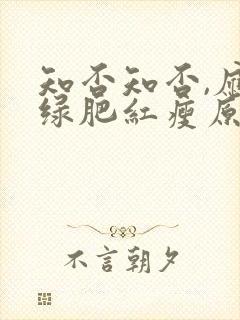 知否知否,应
绿肥红瘦原
不言朝夕